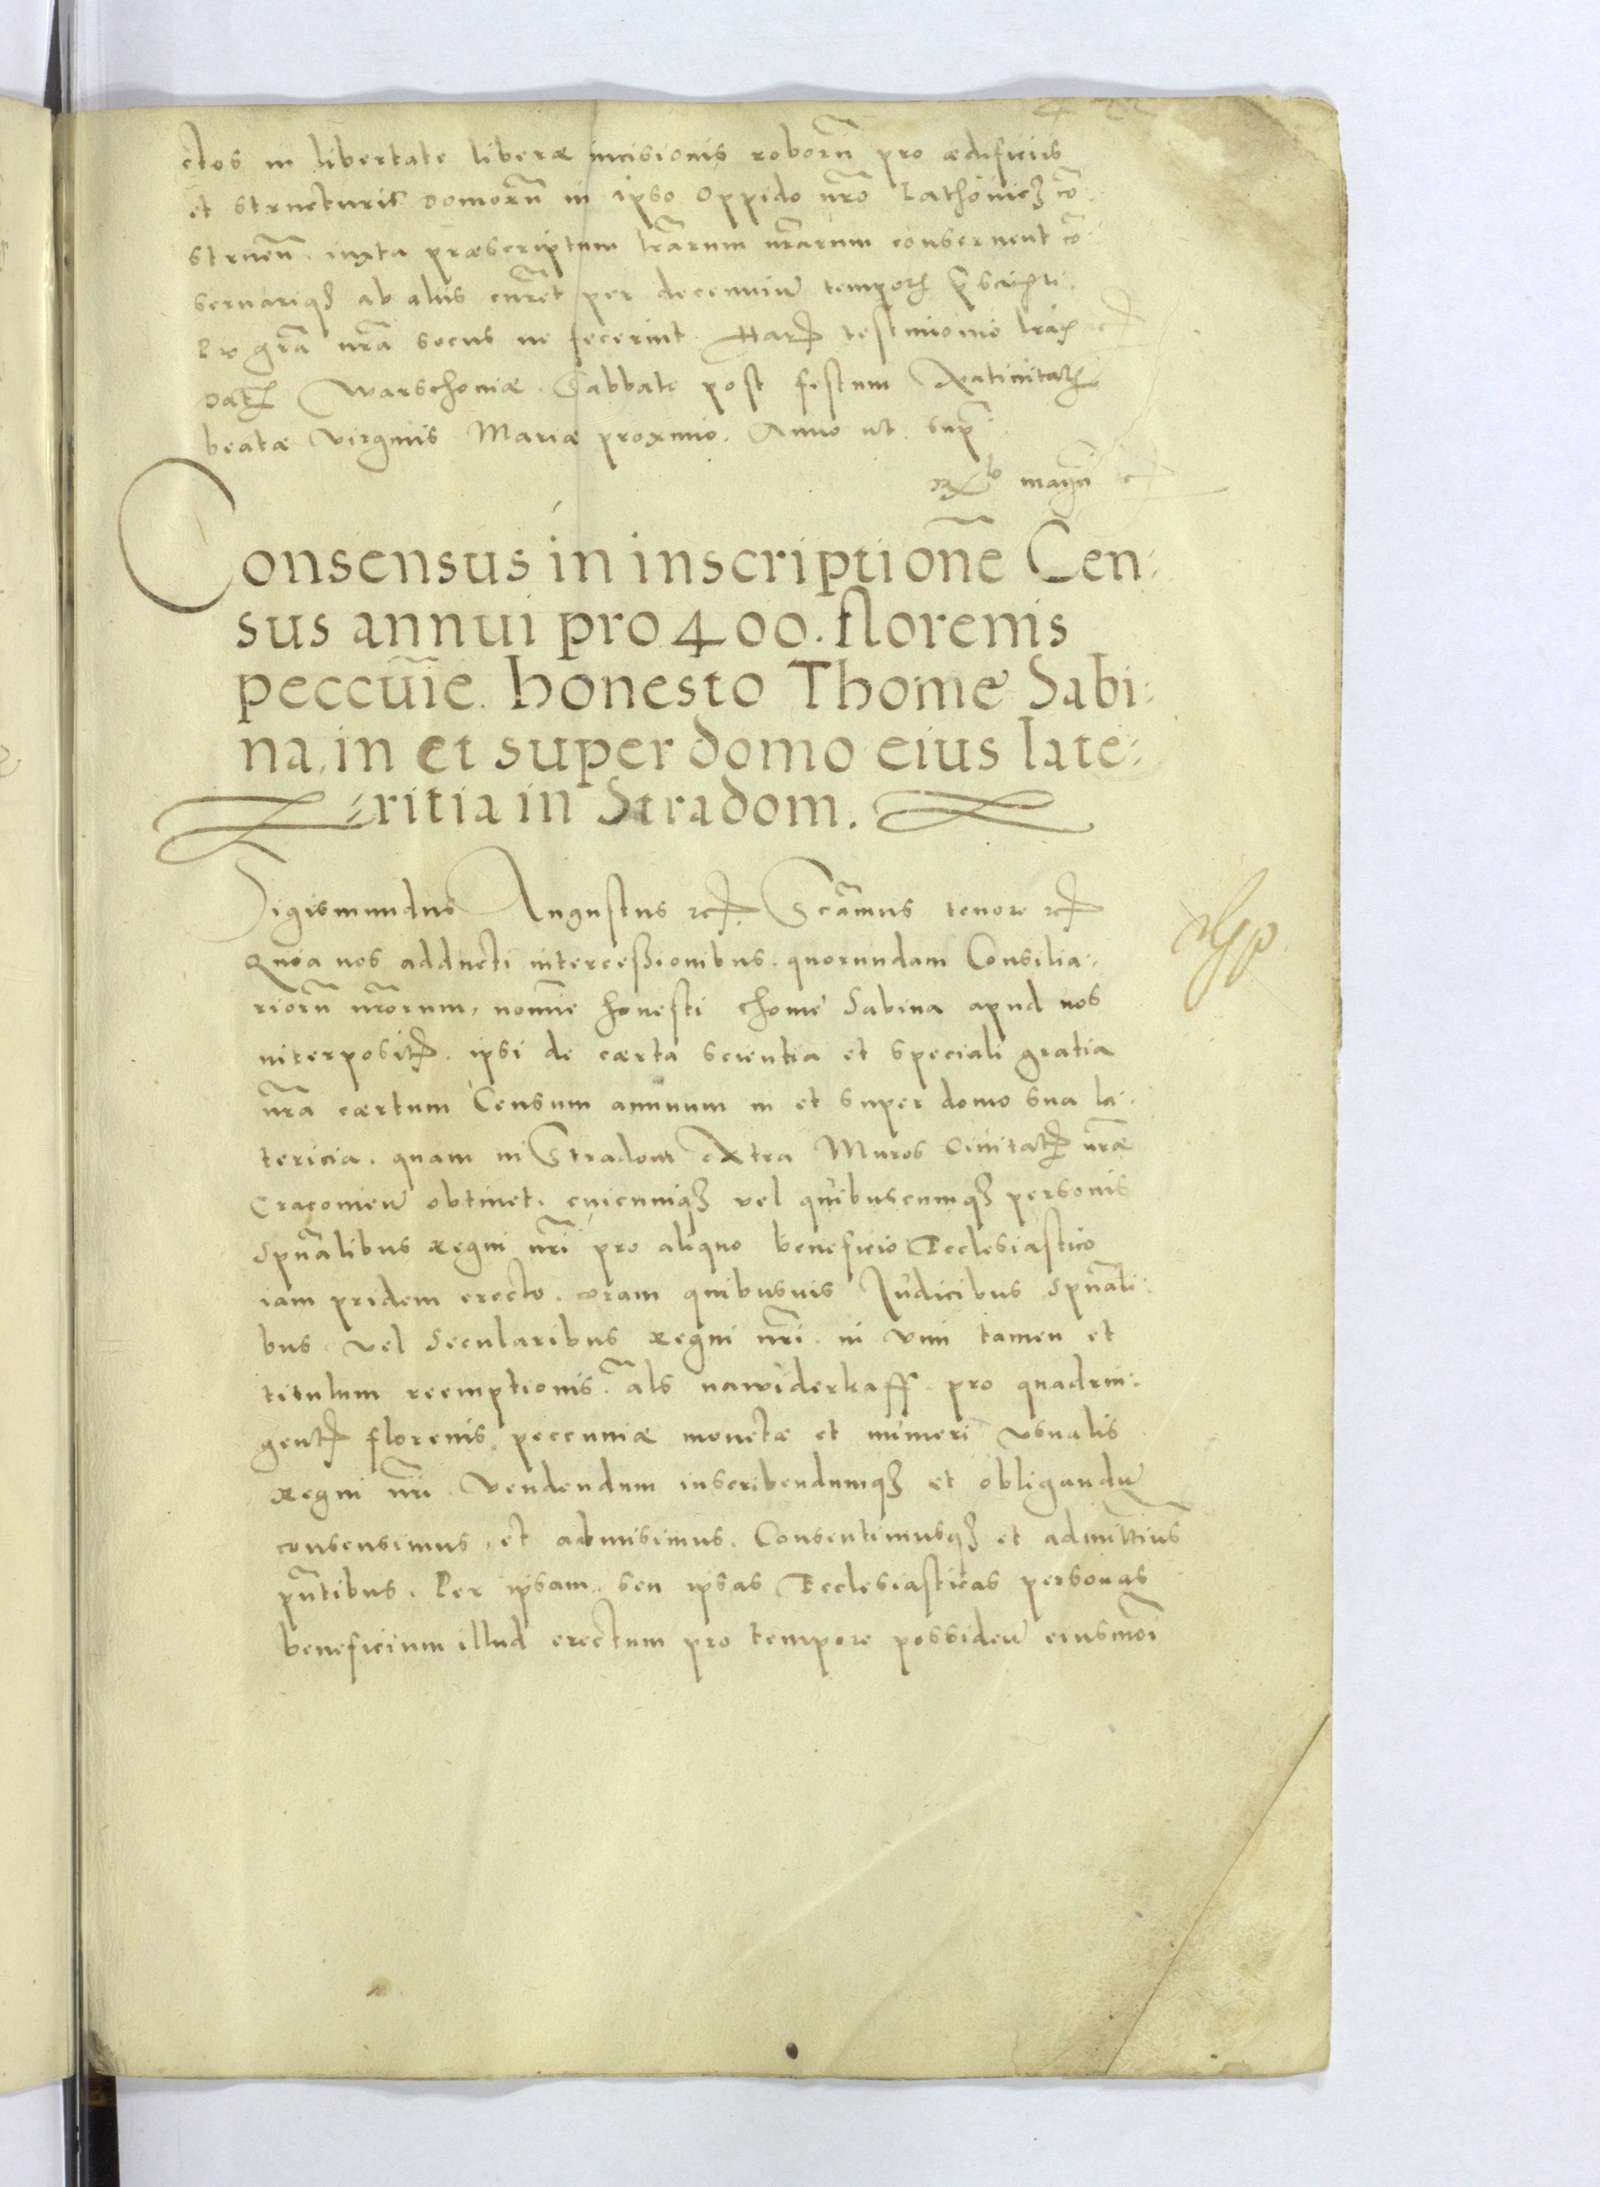 ctos in libertate liberæ incisionis roborũ pro ædificiis
et structuris domorũ in ipso oppido nr̃o Lathowicz cõ
struen̄. iuxta præscriptum lr̃arum nr̃arum conservent cõ
servariq3 ab aliis curẽt per decenniũ tempor̃ p̃scripti.
Pro gr̃a nr̃a secus ne fecerint. Har̃ testimonio lr̃ar̃
Dat̃ Warschoviæ. Sabbato post festum Nativitat̃
beatæ virginis Mariæ proximo. Anno ut sup̃
Consensus in inscriptionẽ Cen:
sus annui pro 400. florenis
peccũie. honesto Thome Sabi:
na, in et super domo eius late:
=ritia in Stradom.
Sigismundus Augustus rc̃ Scãmus tenore rc̃
Quia nos adducti intercessionibus. quorundam Consilia:
riorũ nr̃orum, nomĩe honesti Thome Sabina apud nos
interposit̃. ipsi de cærta scientia et speciali gratia
nr̃a cærtum Censum annuum in et super domo sua la:
tericia. quam in Stradom extra Muros Civitat̃ nr̃æ
Cracovieñ obtinet. cuicumq3 vel quibuscumq3 personis
Spũalibus Regni nr̃i pro aliquo beneficio Ecclesiastico
iam pridem erecto. coram quibusvis Iudicibus Spũali:
bus. vel Secularibus Regni nr̃i. in vim tamen et
titulum reemptionis. als nawiderkaff. pro quadrin:
gent̃ florenis peccuniæ monetæ et numeri usualis
Regni nr̃i. Vendendum inscribendumq3 et obligandũ
consensimus. et admisimus. Consentimusq3 et admittim̃us
pñtibus. Per ipsam. seu ipsas Ecclesiasticas personas
beneficium illud erectum pro tempore possideñ eiusmõi